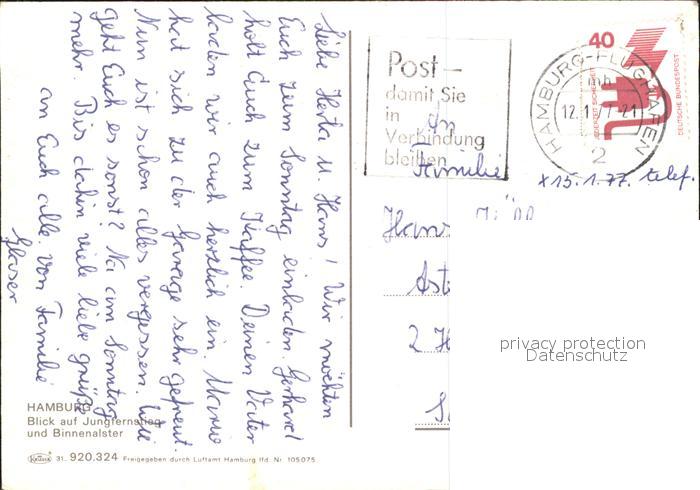 Liebe Herta u. Hans! Wir möchten
Euch zum Sonntag einladen. Gerhard
holt Euch zum Kaffee. Deinen Vater
laden wir auch herzlich ein. Mario
hat sich zu der Garage sehr gefreut.
Nun ist schon alles vergessen. Wie
geht Euch es sonst? Na am Sonntag
mehr. Bis dahin viele liebe Grüße
an Euch alle. von Familie
Glaser
HAMBURG
Blick auf Jungfernstieg
und Binnenalster
Krüger 31. 920.324 Freigegeben durch Luftamt Hamburg lfd. Nr. 105075
Post –
damit Sie
in
Verbindung
bleiben
HAMBURG-FLUGHAFEN
mb
12.1.77-21
2
40
JEDERZEIT SICHERHEIT
DEUTSCHE BUNDESPOST
An
Familie
x 15.1.77. telef.
Hans
2 H
privacy protection
Datenschutz